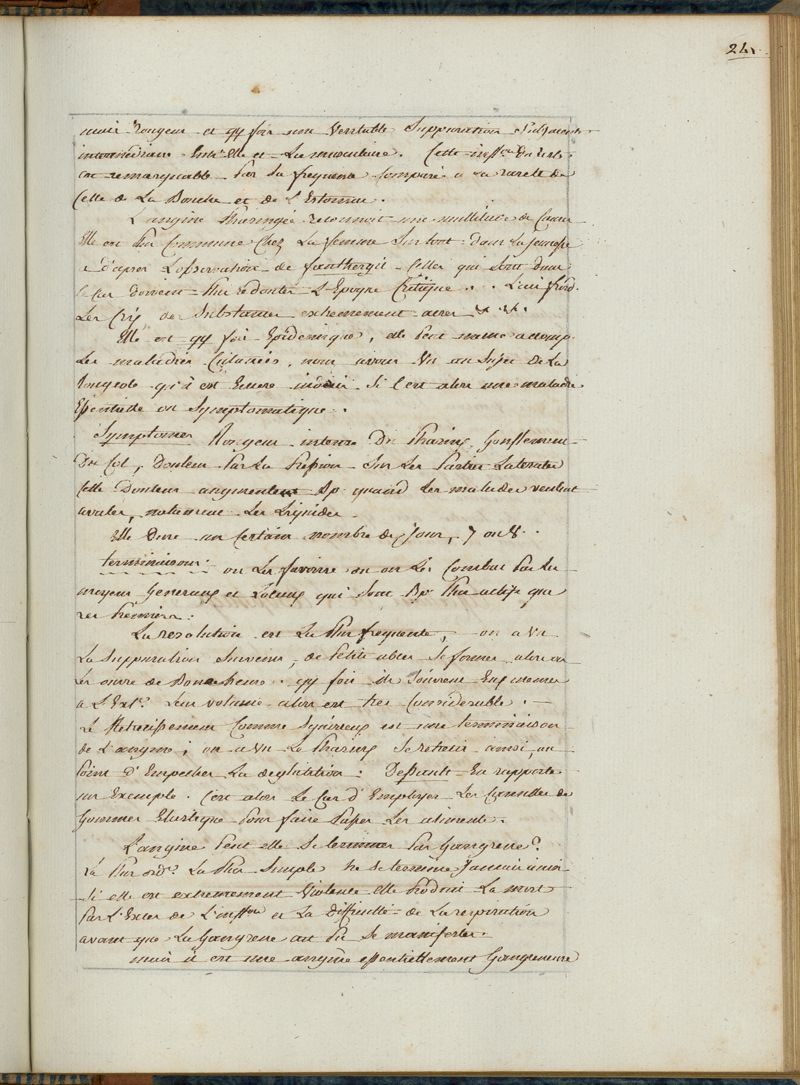 24
mais Rougeur et qq fois une Veritable Suppuration
intermédiaire Entr'Elle et La musculaire. Cette du reste
est remarquable Par Sa frequence Comparée a La rareté de
Celle de La Bouche et de L'Estomac.
L'angine Pharingée reconnoit une multitude de Causes
Elle est Plus Commune Chez La femme Surtout Dans La Jeunesse
d'apres L'observation de Celles qui Sont Dans
Le Cas doivent Plus redouter L'Epoque Critique . . L'air froid.
Les Cris des Substances extremement acres
Elle est qq fois Epidemique, elle Peut meme accomp.
Les maladies Cutanées, nous avons Vu au Sujet de La
Rougeole qu'à est Si C'est alors une maladie
Essentielle ou Symptomatique.
Symptomes Rougeur intense Du Pharinx, Gonflement
Du Col, Douleur Par La Pression Sur Les Parties Laterales
Cette Douleur augmente quand Les malades veulent
avaler, notamment Les Liquides
Elle Dure un Certain nombre de Jours, 7 ou 8.
terminaison: on La favorise ou on Les Combat Par Les
moyens Generaux et Locaux qui Sont Plus actifs que
Les Premiers.
La resolution est La Plus frequente, on a Vu
La Suppuration Survenir, de Petits abces Se former alors on
Les ouvre de Bonne heure. qq fois ils S'ouvrent Eux memes
a L'Ext. Leur volume alors est tres Considerable.
Le Retrecissement Comme Squirreux est une terminaison
de L'angine; on a Vu Le Pharinx Se retrecir ainsi, au
Point d'Empecher La deglutition: Dessault En rapporte
un Exemple. C'est alors Le Cas d'Employer Les Canules de
Gommes Elastique Pour faire Passer Les aliments.
L'angine Peut elle Se terminer Par Gangrene?
La Plus Simple ne Se termine Jamais ainsi
Si elle est extremement Violente elle Produit La mort
Par L'Exces de L' et La Difficulté de La respiration
avant que La Gangrene ait Pu Se manifester.
mais il est une angine essentiellement Gangreneuse